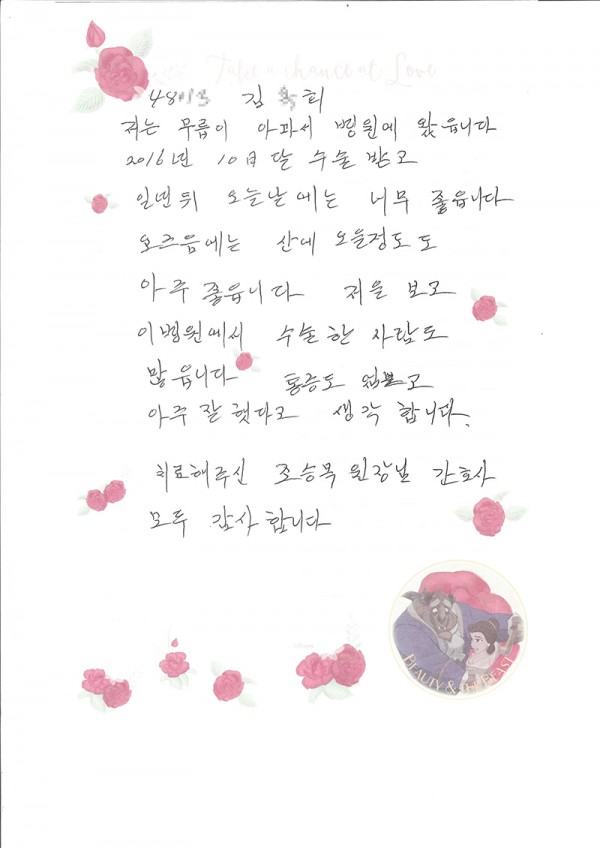 Take a chance at Love
48 김 희
저는 무릅이 아파서 병원에 왔읍니다
2016년 10日달 수술받고
일년뒤 오늘날에는 너무 좋읍니다
오즈음에는 산에 오을정도도
아주 좋읍니다 저을 보고
이병원에서 수술한 사람도
많읍니다 통증도 없고
아주 잘 했다고 생각합니다.
치료해주신 조승목 원장님 간호사
모두 감사합니다
BEAUTY & THE BEAST